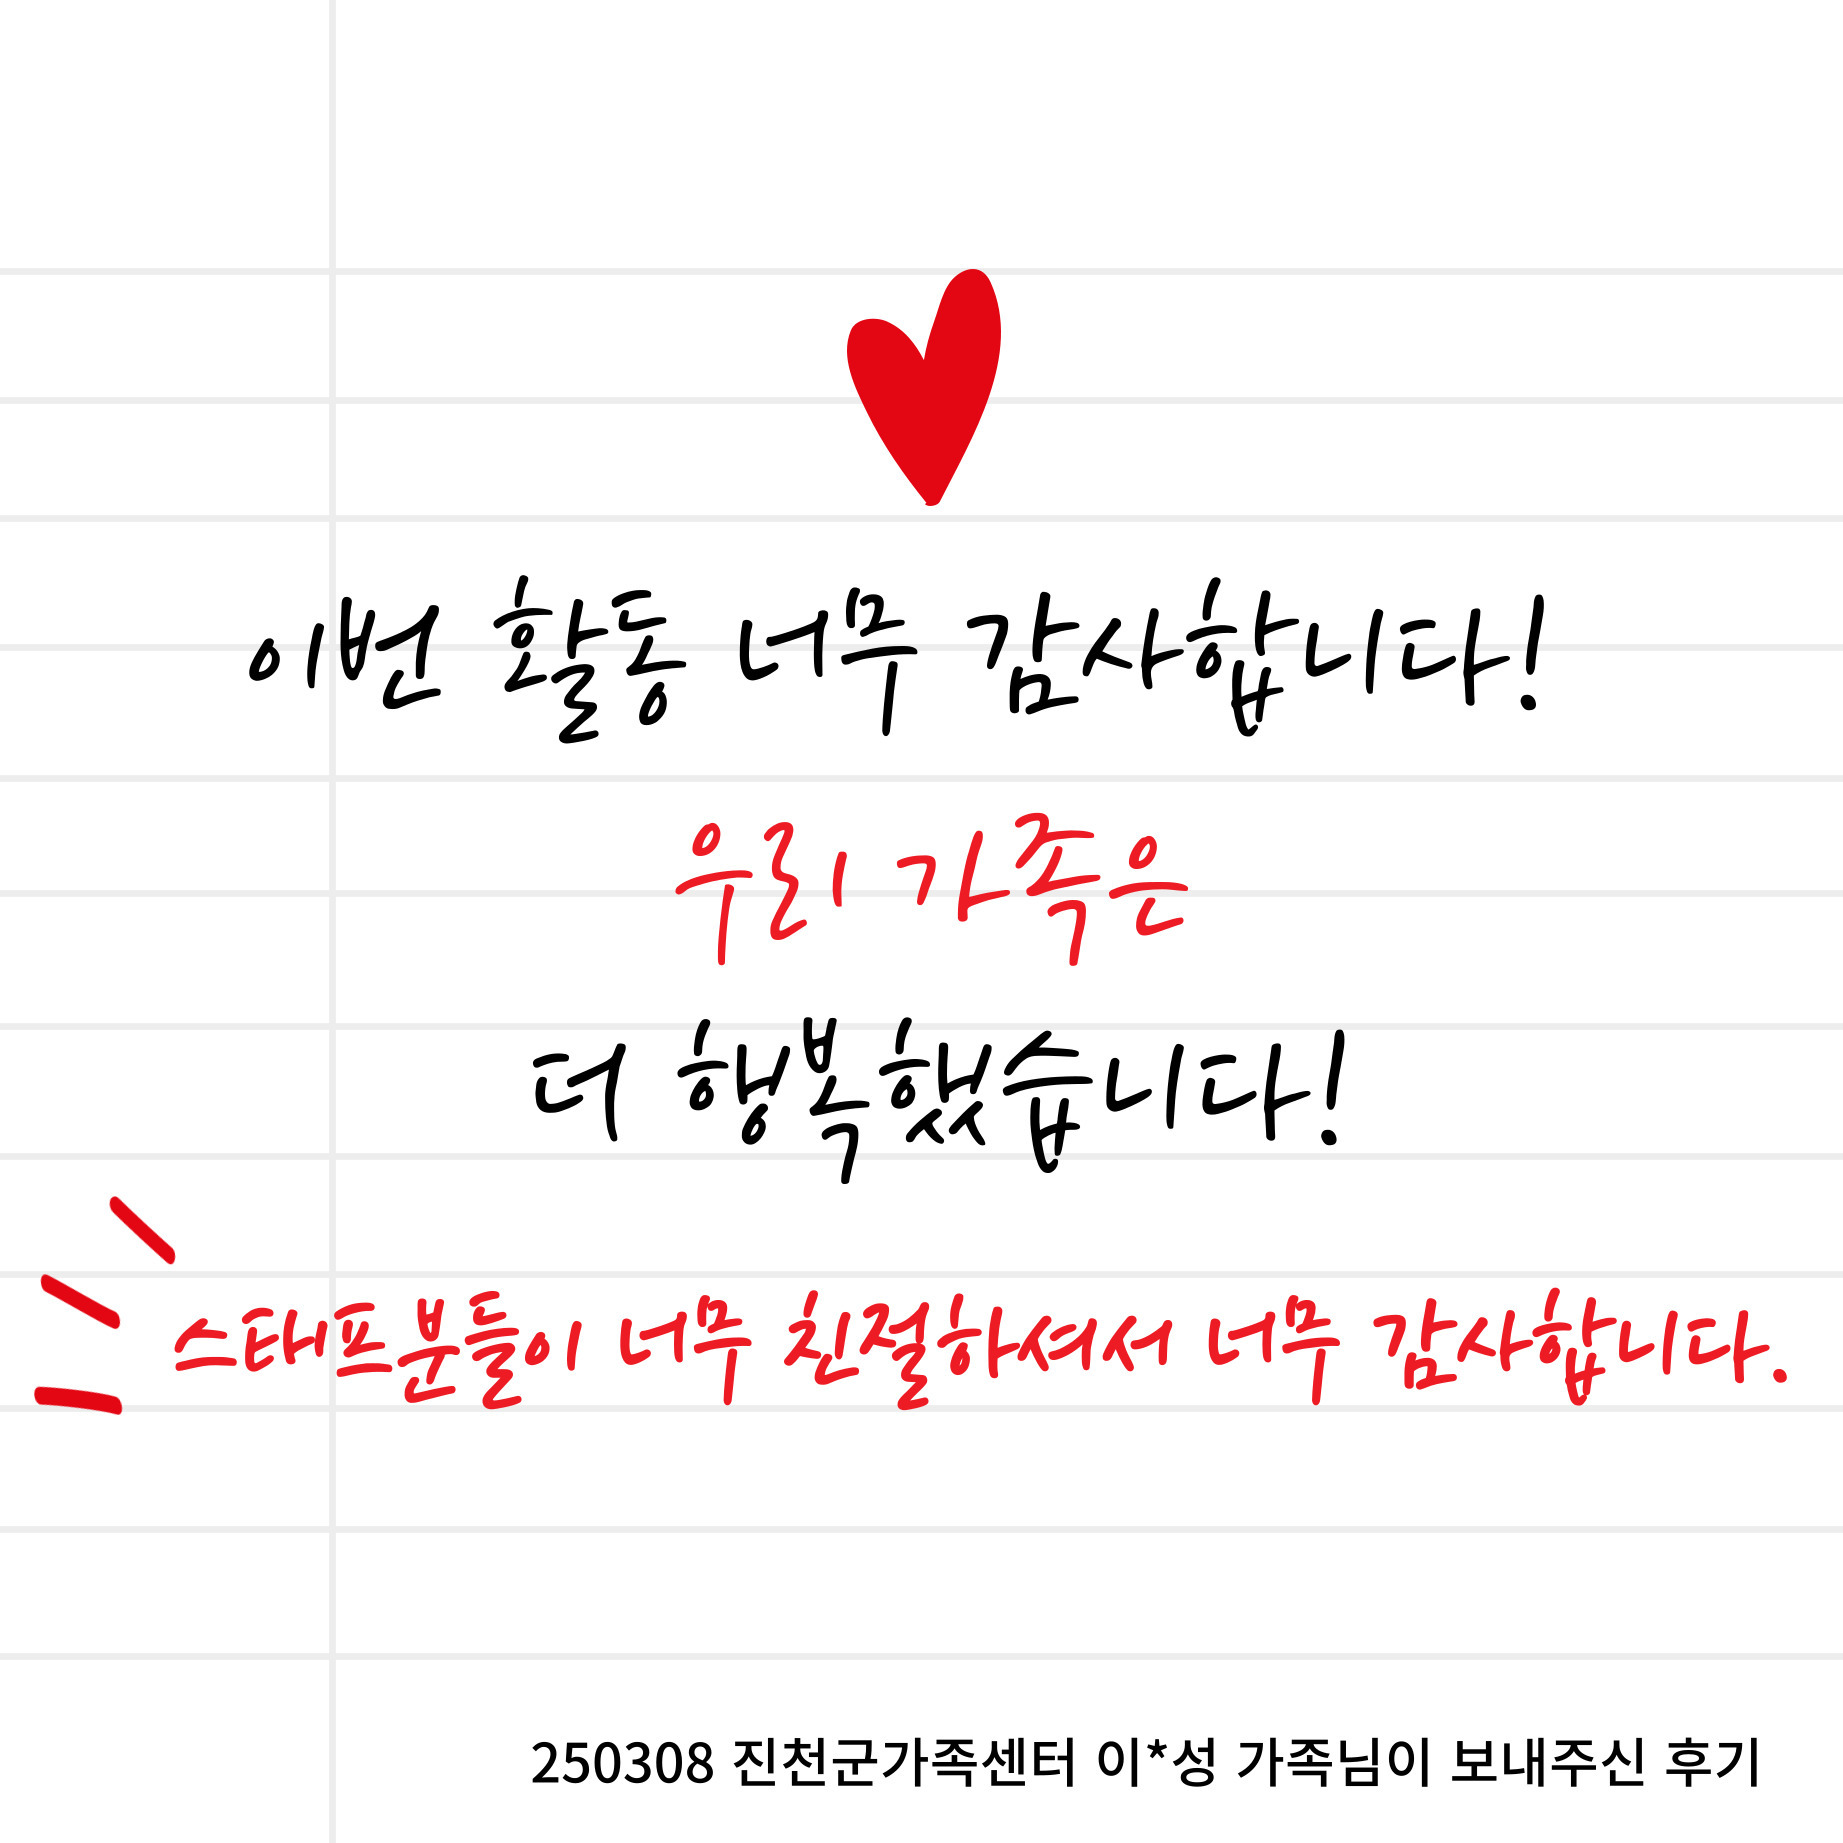 이번 활동 너무 감사합니다!
우리 가족은
더 행복했습니다!
스태프분들이 너무 친절하셔서 너무 감사합니다.
250308 진천군가족센터 이*성 가족님이 보내주신 후기